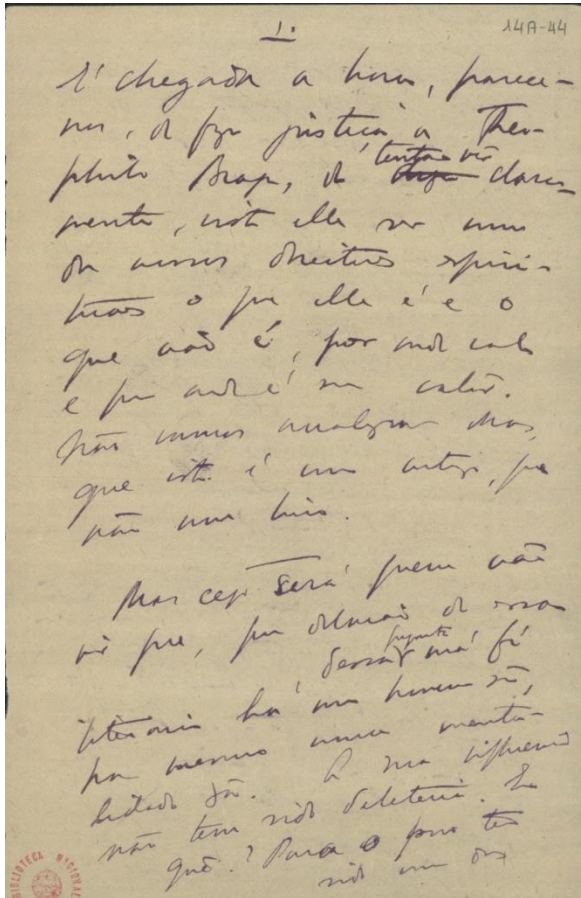 1.
14A-44
É chegada a hora, parece-
nos, de fazer justiça a Theo-
philo Braga, de tentar ver clara-
mente, visto elle ser um
dos nossos directores espiri-
tuaes o que elle é e o
que não é, por onde vale
e por onde é sem valor.
Não vamos analysar
que isto é um artigo,
não um livro.
Mas cego será quem não
vê que, por de essa
dessa má fé
litteraria ha um homem são,
por mesmo uma menta-
lidade sã. A sua influencia
não tem sido deleteria. Em
quê? Para o tem
sido um dos
BIBLIOTECA NACIONAL